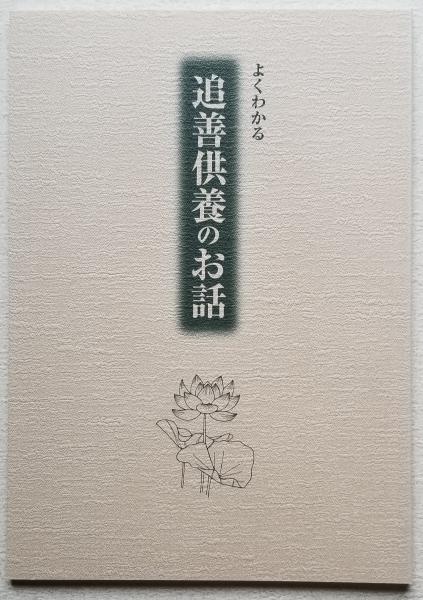 よくわかる
追善供養のお話